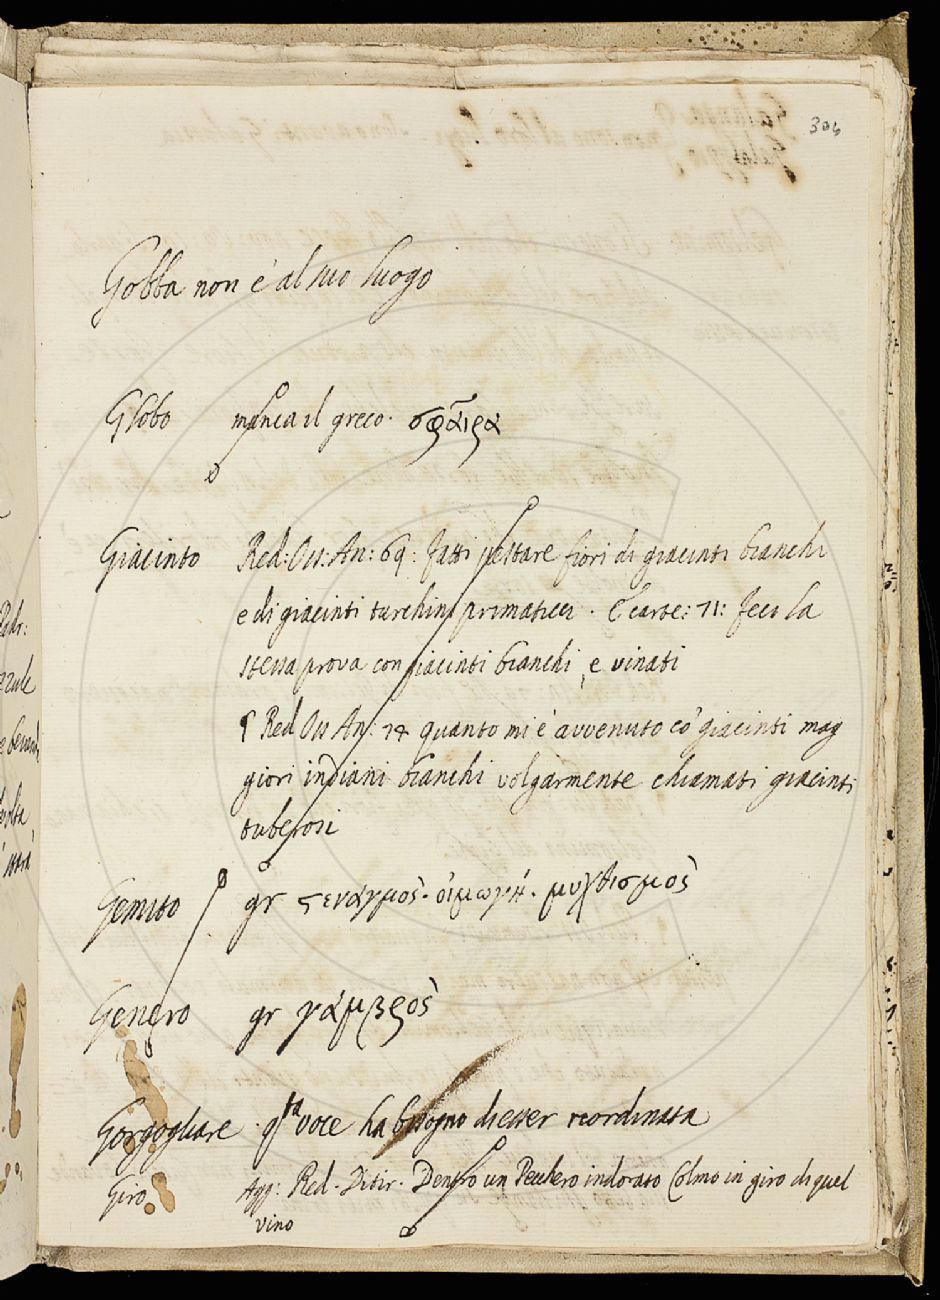 304
Gobba non è al suo luogo
Globo manca il greco. σφαῖρα
Giacinto Red: Oss: An: 69: fatti pestare fiori di giacinti bianchi
e di giacinti turchini primaticci. E carte: 71: feci la
stessa prova con giacinti bianchi, e vinati
¶ Red Oss An: 74 quanto mi è avvenuto cò giacinti mag
giori indiani bianchi volgarmente chiamati giacinti
tuberosi
Gemito gr ϛεναγμὸς. οἰμωγή. μυχθισμὸς
Genero gr γάμβρὸς
Gorgogliare qsta voce ha bisogno di esser reordinata
Giro Agg: Red. Ditir. Dentro un Pecchero indorato Colmo in giro di quel
vino
Padr: